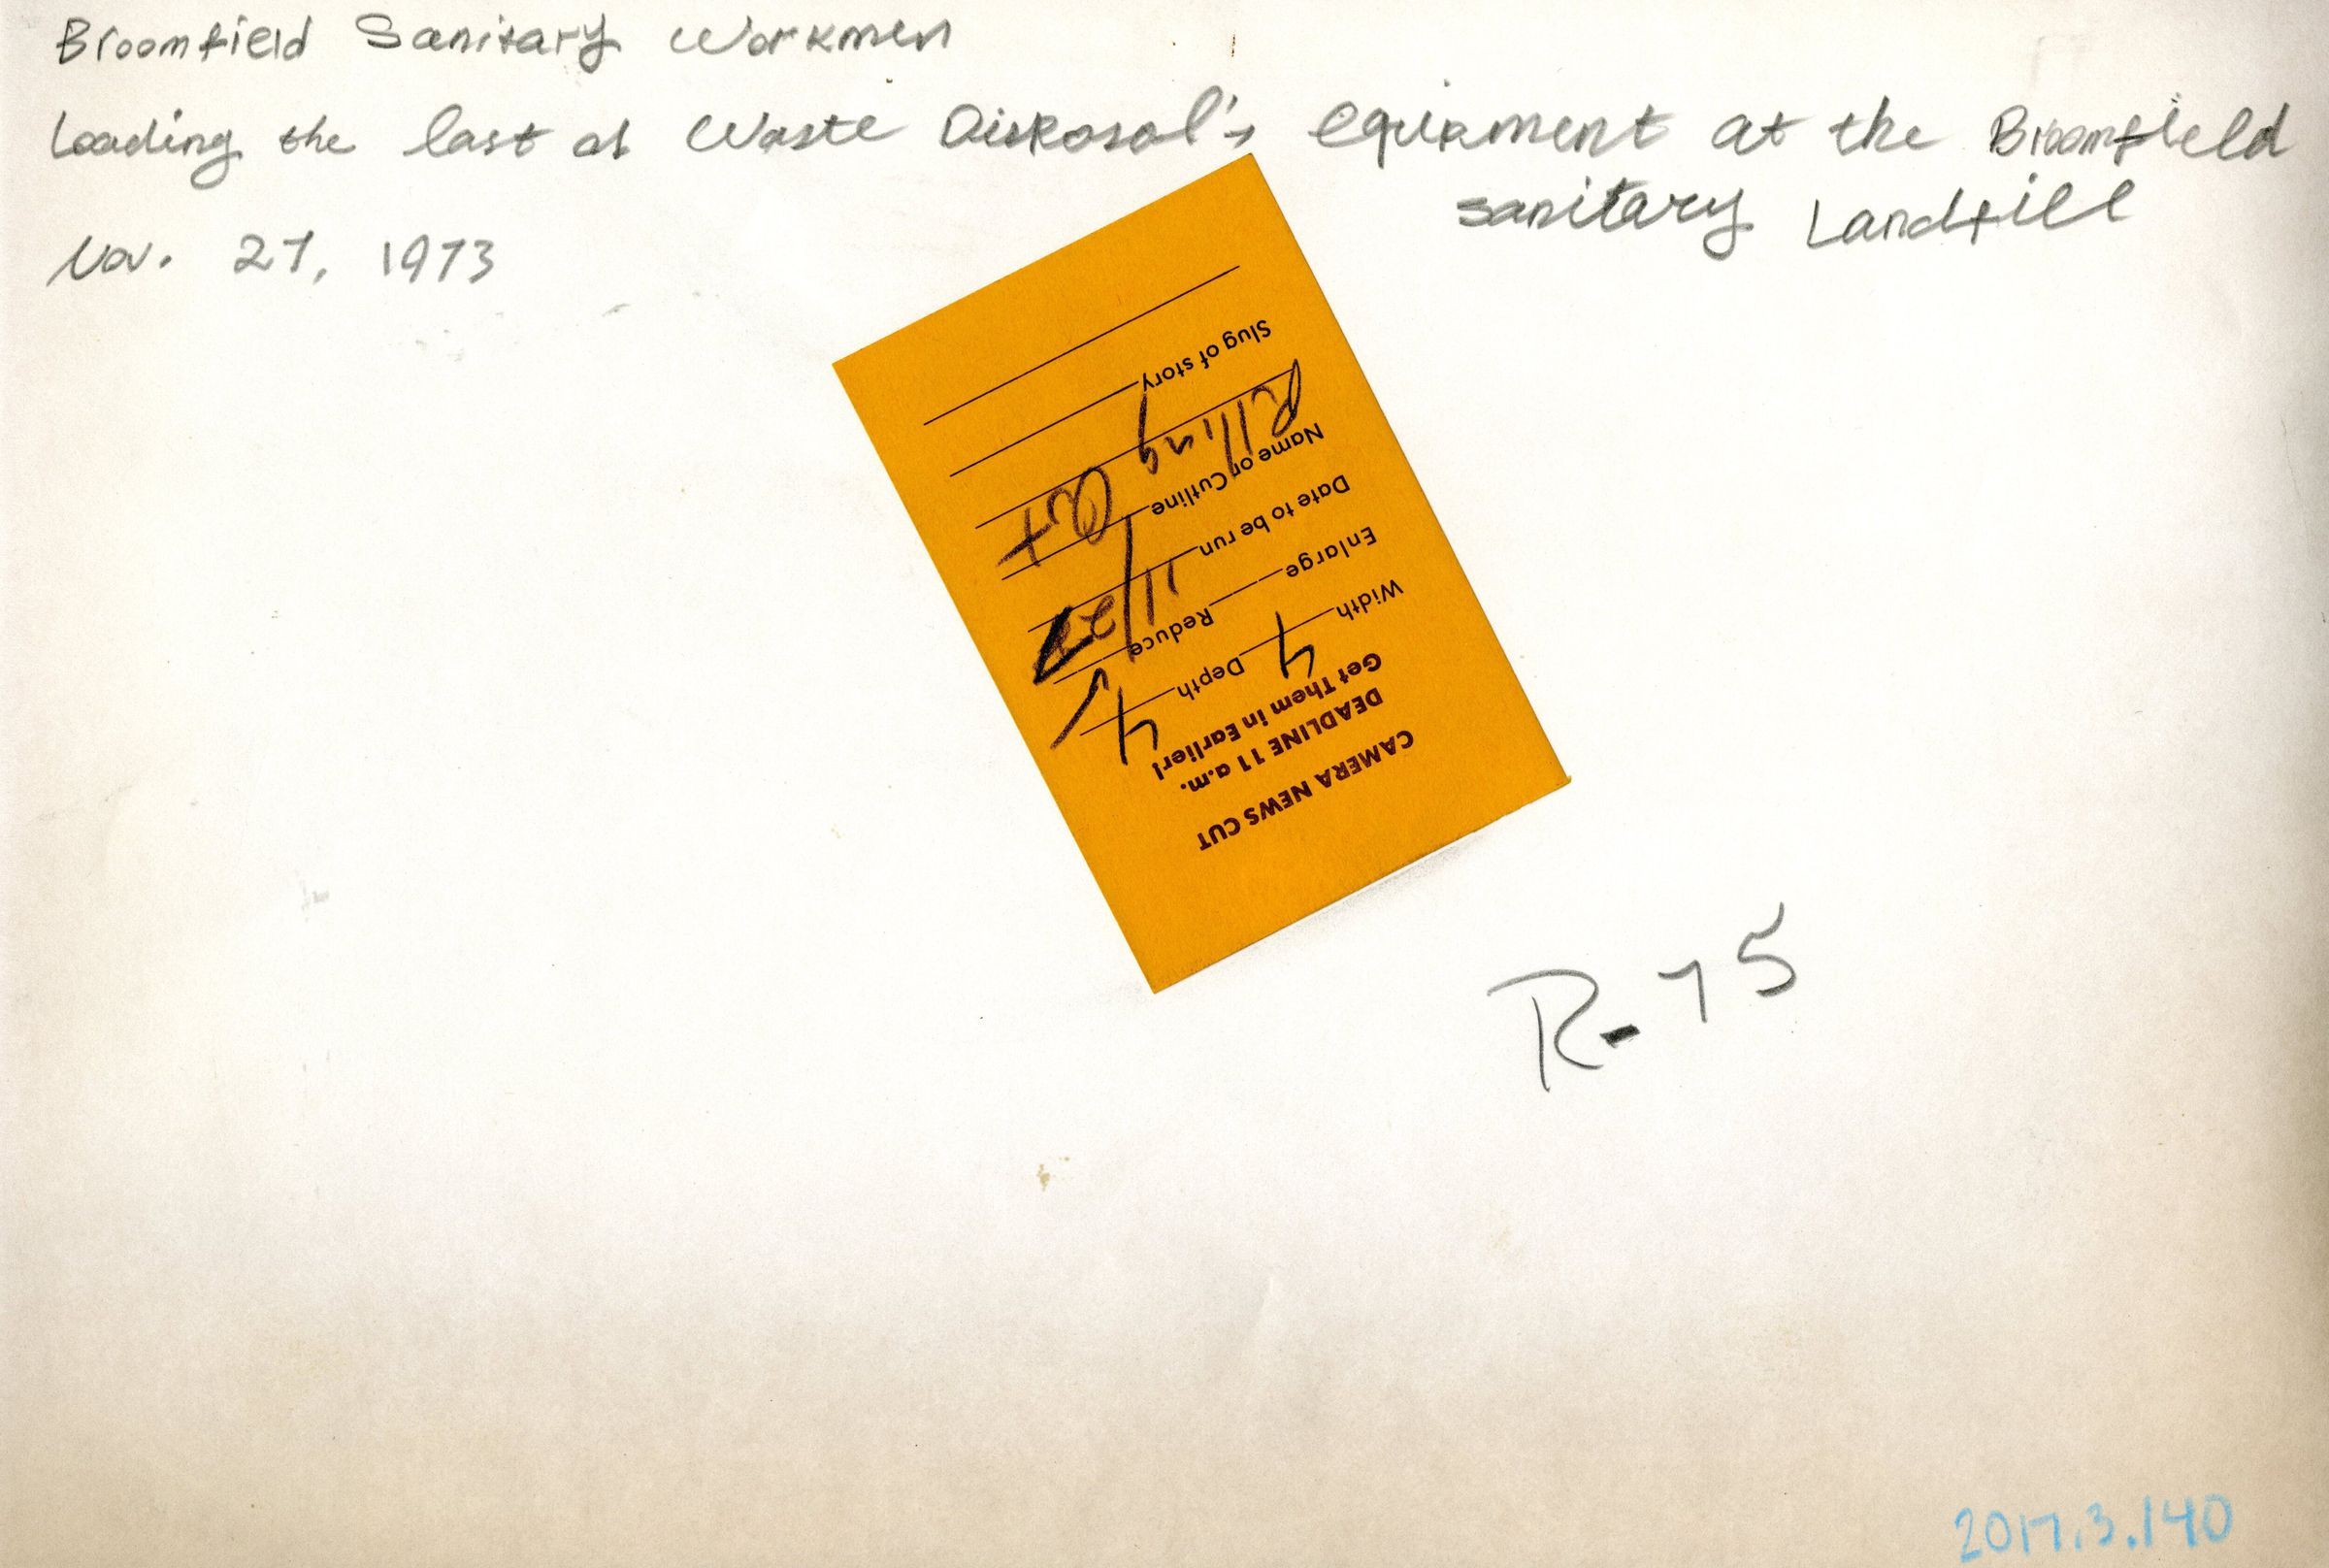 Broomfield Sanitary Workmen
Loading the last of Waste Disposal's equipment at the Broomfield
sanitary Landfill
Nov. 27, 1973
CAMERA NEWS CUT
DEADLINE 11 a.m.
Get Them in Earlier!
Width 4 Depth 4
Enlarge Reduce
Date to be run 11/27
Name or Cutline
Pulling Out
Slug of story
R-75
2017.3.140